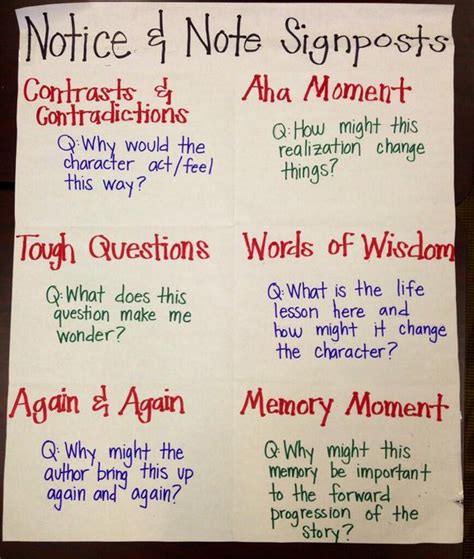 Notice & Note Signposts
Contrasts &
Contradictions
Q: Why would the
character act/feel
this way?
Aha Moment
Q: How might this
realization change
things?
Tough Questions
Q: What does this
question make me
wonder?
Words of Wisdom
Q: What is the life
lesson here and
how might it change
the character?
Again & Again
Q: Why might the
author bring this up
again and again?
Memory Moment
Q: Why might this
memory be important
to the forward
progression of the
story?